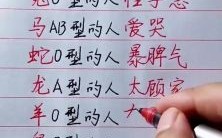 O型的人
马AB型的人 爱哭
蛇O型的人 暴脾气
龙A型的人 太顾家
羊O型的人